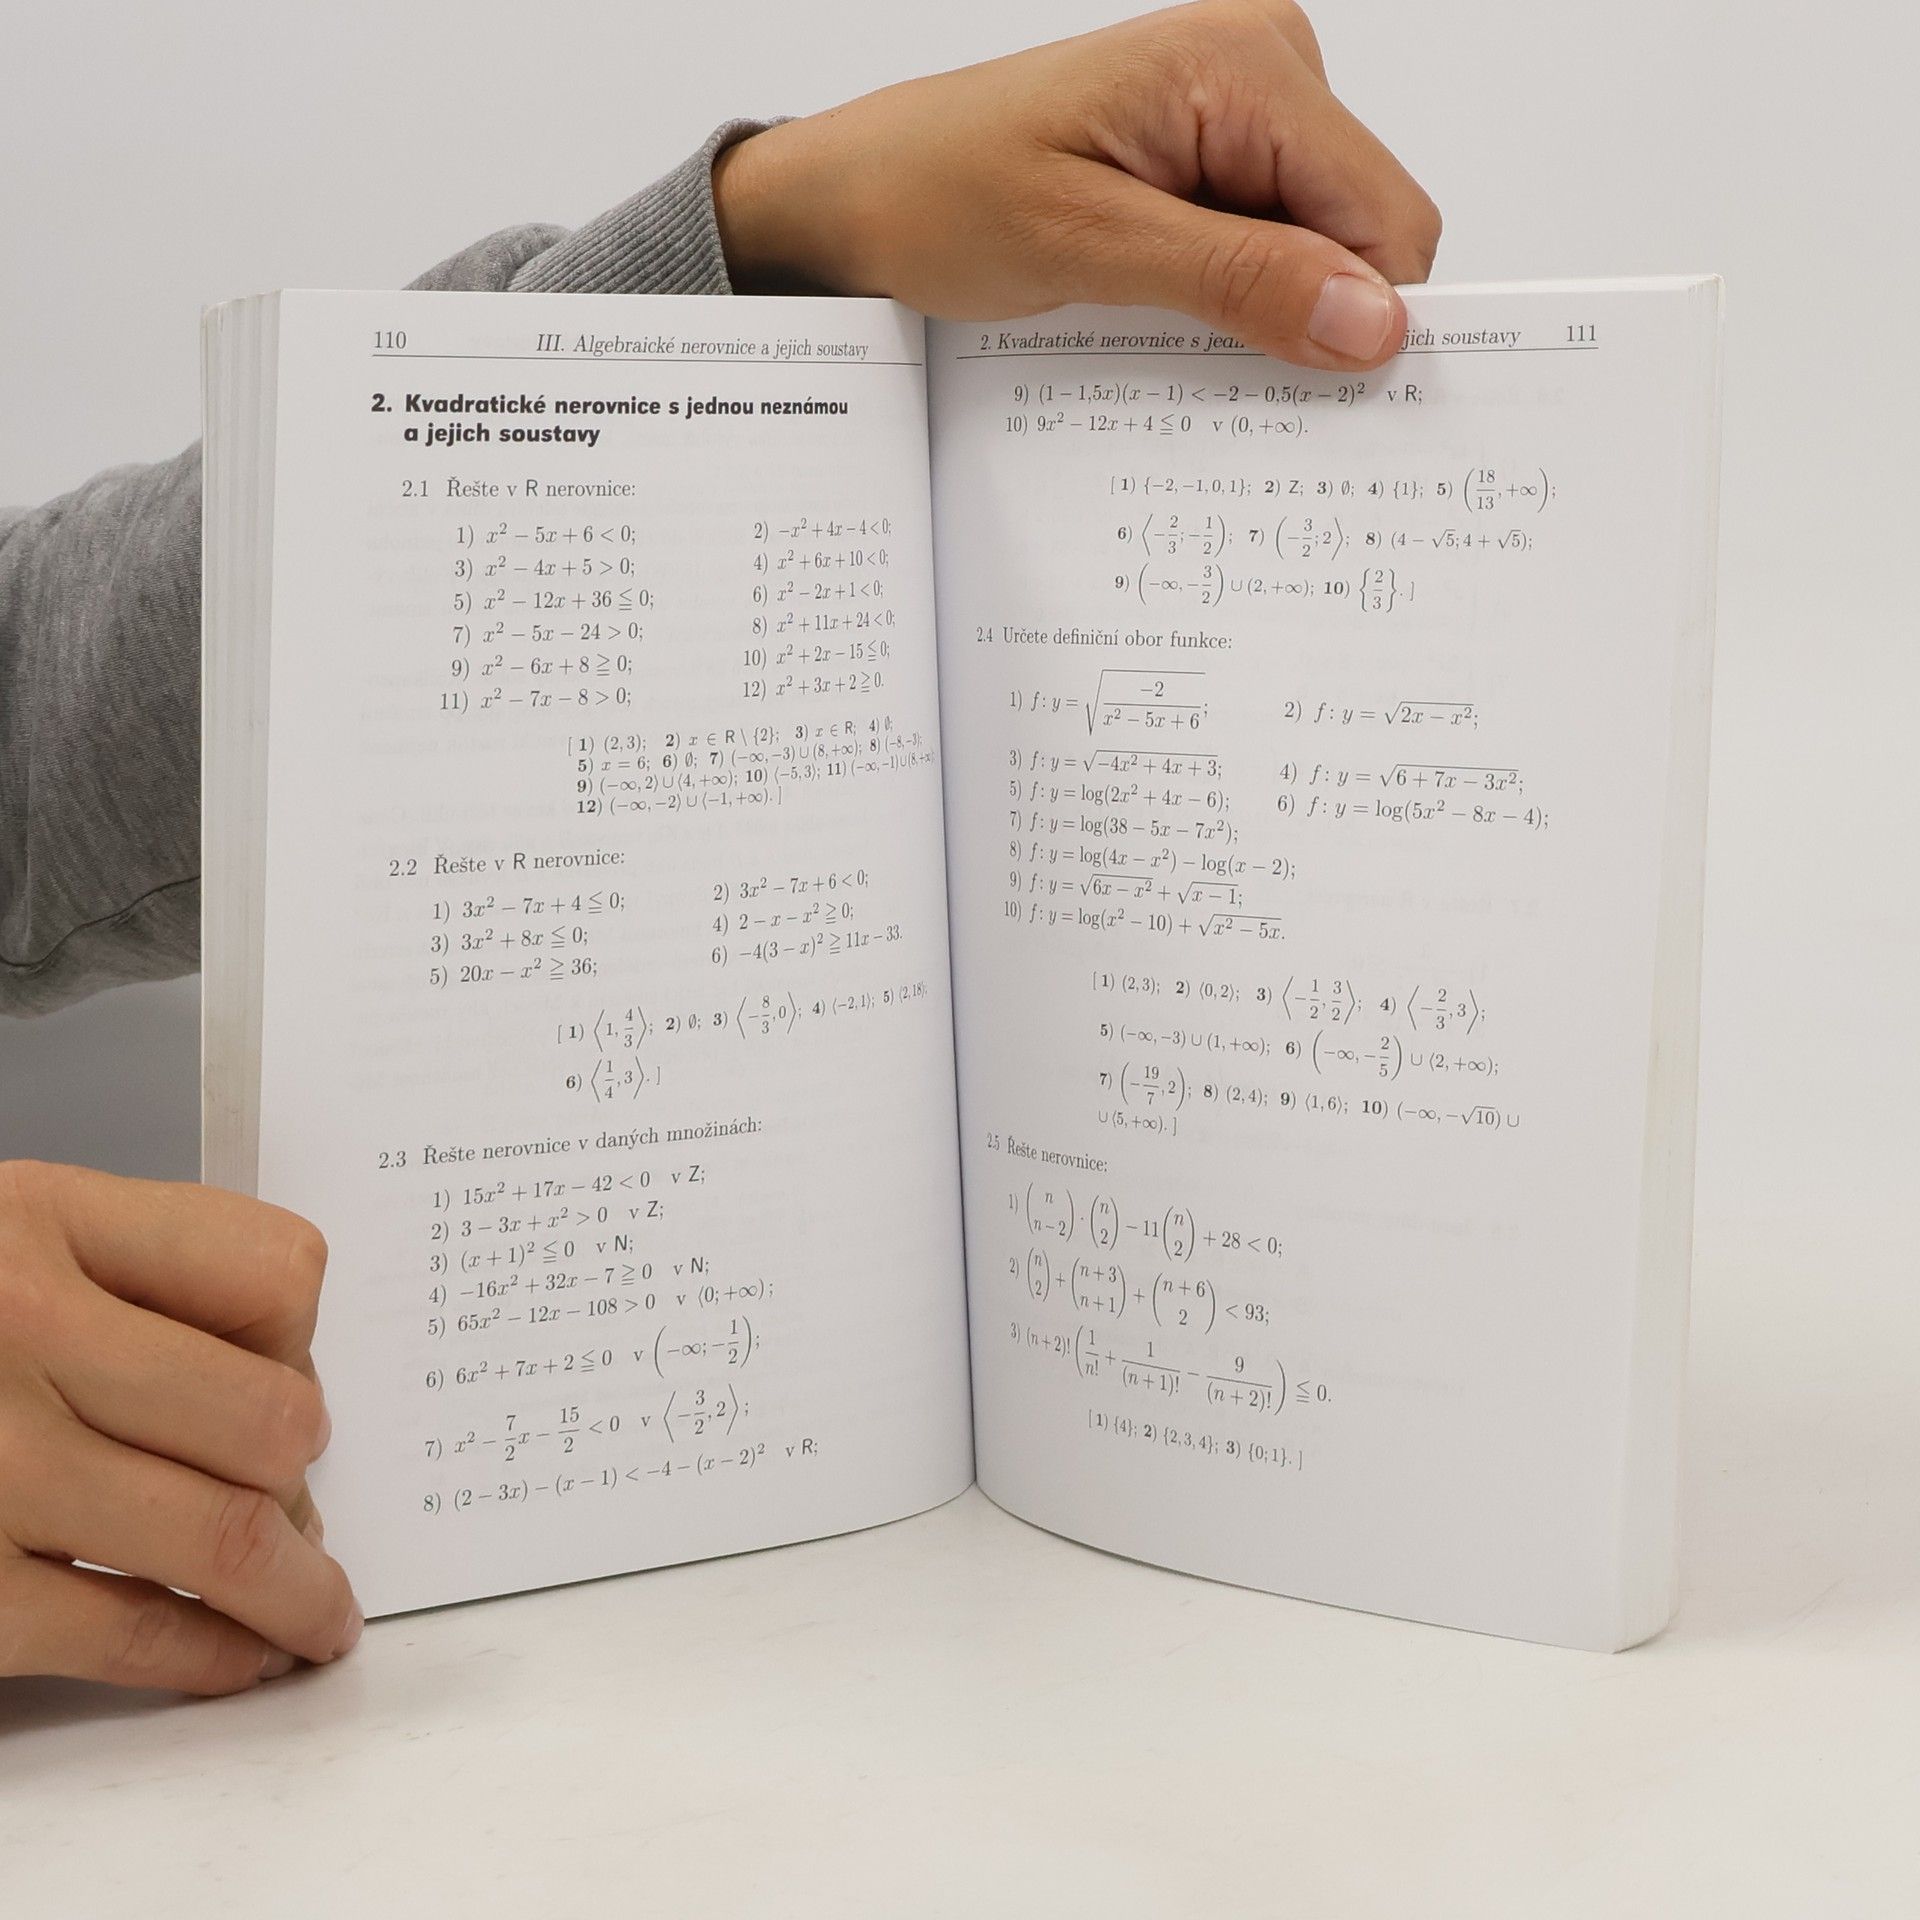 110 III. Algebraické nerovnice a jejich soustavy
2. Kvadratické nerovnice s jednou neznámou
a jejich soustavy
2.1 Řešte v R nerovnice:
1) x² − 5x + 6 < 0; 2) −x² + 4x − 4 < 0;
3) x² − 4x + 5 > 0; 4) x² + 6x + 10 < 0;
5) x² − 12x + 36 ≦ 0; 6) x² − 2x + 1 < 0;
7) x² − 5x − 24 > 0; 8) x² + 11x + 24 < 0;
9) x² − 6x + 8 ≧ 0; 10) x² + 2x − 15 ≦ 0;
11) x² − 7x − 8 > 0; 12) x² + 3x + 2 ≧ 0.
[ 1) (2, 3); 2) x ∈ R \ {2}; 3) x ∈ R; 4) ∅;
5) x = 6; 6) ∅; 7) (−∞, −3) ∪ (8, +∞); 8) (−8, −3);
9) (−∞, 2⟩ ∪ ⟨4, +∞); 10) ⟨−5, 3⟩; 11) (−∞, −1) ∪ (8, +∞);
12) (−∞, −2⟩ ∪ ⟨−1, +∞). ]
2.2 Řešte v R nerovnice:
1) 3x² − 7x + 4 ≦ 0; 2) 3x² − 7x + 6 < 0;
3) 3x² + 8x ≦ 0; 4) 2 − x − x² ≧ 0;
5) 20x − x² ≧ 36; 6) −4(3 − x)² ≧ 11x − 33.
[ 1) ⟨1, 4/3⟩; 2) ∅; 3) ⟨−8/3, 0⟩; 4) ⟨−2, 1⟩; 5) ⟨2, 18⟩;
6) ⟨1/4, 3⟩. ]
2.3 Řešte nerovnice v daných množinách:
1) 15x² + 17x − 42 < 0 v Z;
2) 3 − 3x + x² > 0 v Z;
3) (x + 1)² ≦ 0 v N;
4) −16x² + 32x − 7 ≧ 0 v N;
5) 65x² − 12x − 108 > 0 v ⟨0; +∞);
6) 6x² + 7x + 2 ≦ 0 v (−∞; −1/2);
7) x² − 7/2 x − 15/2 < 0 v ⟨−3/2, 2⟩;
8) (2 − 3x) − (x − 1) < −4 − (x − 2)² v R;
2. Kvadratické nerovnice s jich soustavy 111
9) (1 − 1,5x)(x − 1) < −2 − 0,5(x − 2)² v R;
10) 9x² − 12x + 4 ≦ 0 v (0, +∞).
[ 1) {−2, −1, 0, 1}; 2) Z; 3) ∅; 4) {1}; 5) (18/13, +∞);
6) ⟨−2/3; −1/2); 7) (−3/2; 2⟩; 8) (4 − √5; 4 + √5);
9) (−∞, −3/2) ∪ (2, +∞); 10) {2/3}. ]
2.4 Určete definiční obor funkce:
1) f: y = √(−2/(x² − 5x + 6)); 2) f: y = √(2x − x²);
3) f: y = √(−4x² + 4x + 3); 4) f: y = √(6 + 7x − 3x²);
5) f: y = log(2x² + 4x − 6); 6) f: y = log(5x² − 8x − 4);
7) f: y = log(38 − 5x − 7x²);
8) f: y = log(4x − x²) − log(x − 2);
9) f: y = √(6x − x²) + √(x − 1);
10) f: y = log(x² − 10) + √(x² − 5x).
[ 1) (2, 3); 2) ⟨0, 2⟩; 3) ⟨−1/2, 3/2⟩; 4) ⟨−2/3, 3⟩;
5) (−∞, −3) ∪ (1, +∞); 6) (−∞, −2/5) ∪ (2, +∞);
7) (−19/7, 2); 8) (2, 4); 9) ⟨1, 6⟩; 10) (−∞, −√10) ∪
∪ ⟨5, +∞). ]
2.5 Řešte nerovnice:
1) (n n−2) · (n 2) − 11 (n 2) + 28 < 0;
2) (n 2) + (n+3 n+1) + (n+6 2) < 93;
3) (n + 2)! (1/n! + 1/(n + 1)! − 9/(n + 2)!) ≦ 0.
[ 1) {4}; 2) {2, 3, 4}; 3) {0; 1}. ]